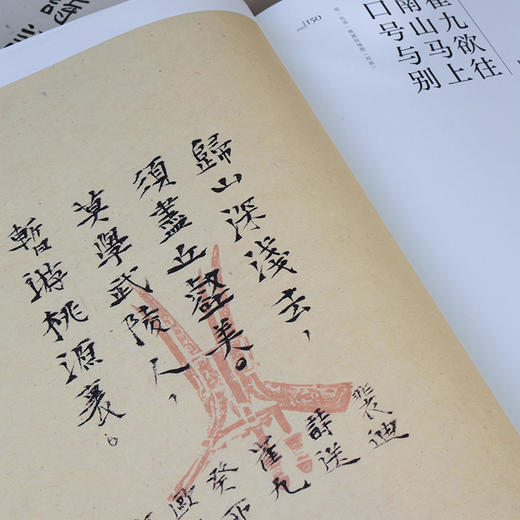 崔九欲往
南山马上
口号与别
150
歸山深淺去，
須盡丘壑美。
莫學武陵人，
暫游桃源裏。
裴迪
詩送
崔九
癸卯
歐